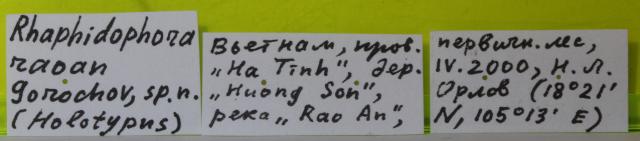 Rhaphidophora
raoan
Gorochov, sp. n.
(Holotypus)
Вьетнам, пров.
„Ha Tinh", дер.
„Huong Son",
река „Rao An",
первичн. лес,
IV. 2000, Н. Л.
Орлов (18°21'
N, 105°13' E)